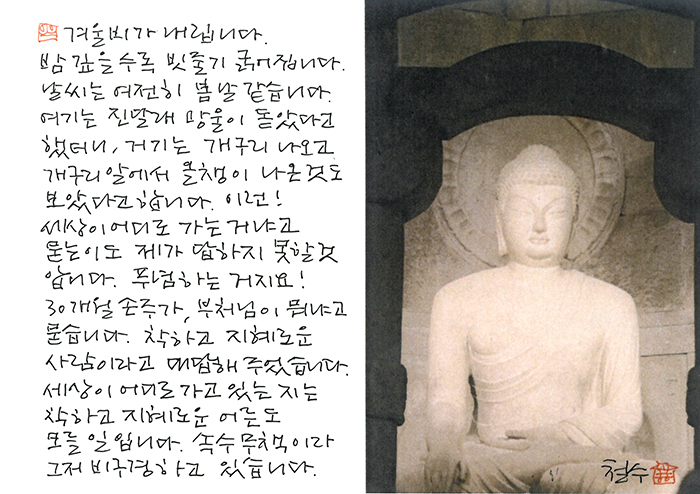 겨울비가 내립니다.
밤 깊을수록 빗줄기 굵어집니다.
날씨는 여전히 봄날 같습니다.
여기는 진달래 망울이 돋았다고
했더니, 거기는 개구리 나오고
개구리알에서 올챙이 나온것도
보았다고 합니다. 이런!
세상이 어디로 가는거냐고
묻는이도 제가 답하지 못할 것
압니다. 푸념하는 거지요!
30개월 손주가, 부처님이 뭐냐고
묻습니다. 착하고 지혜로운
사람이라고 대답해 주었습니다.
세상이 어디로 가고 있는 지는
착하고 지혜로운 어른도
모를 일입니다. 속수무책이라
그저 비구경하고 있습니다.
철수